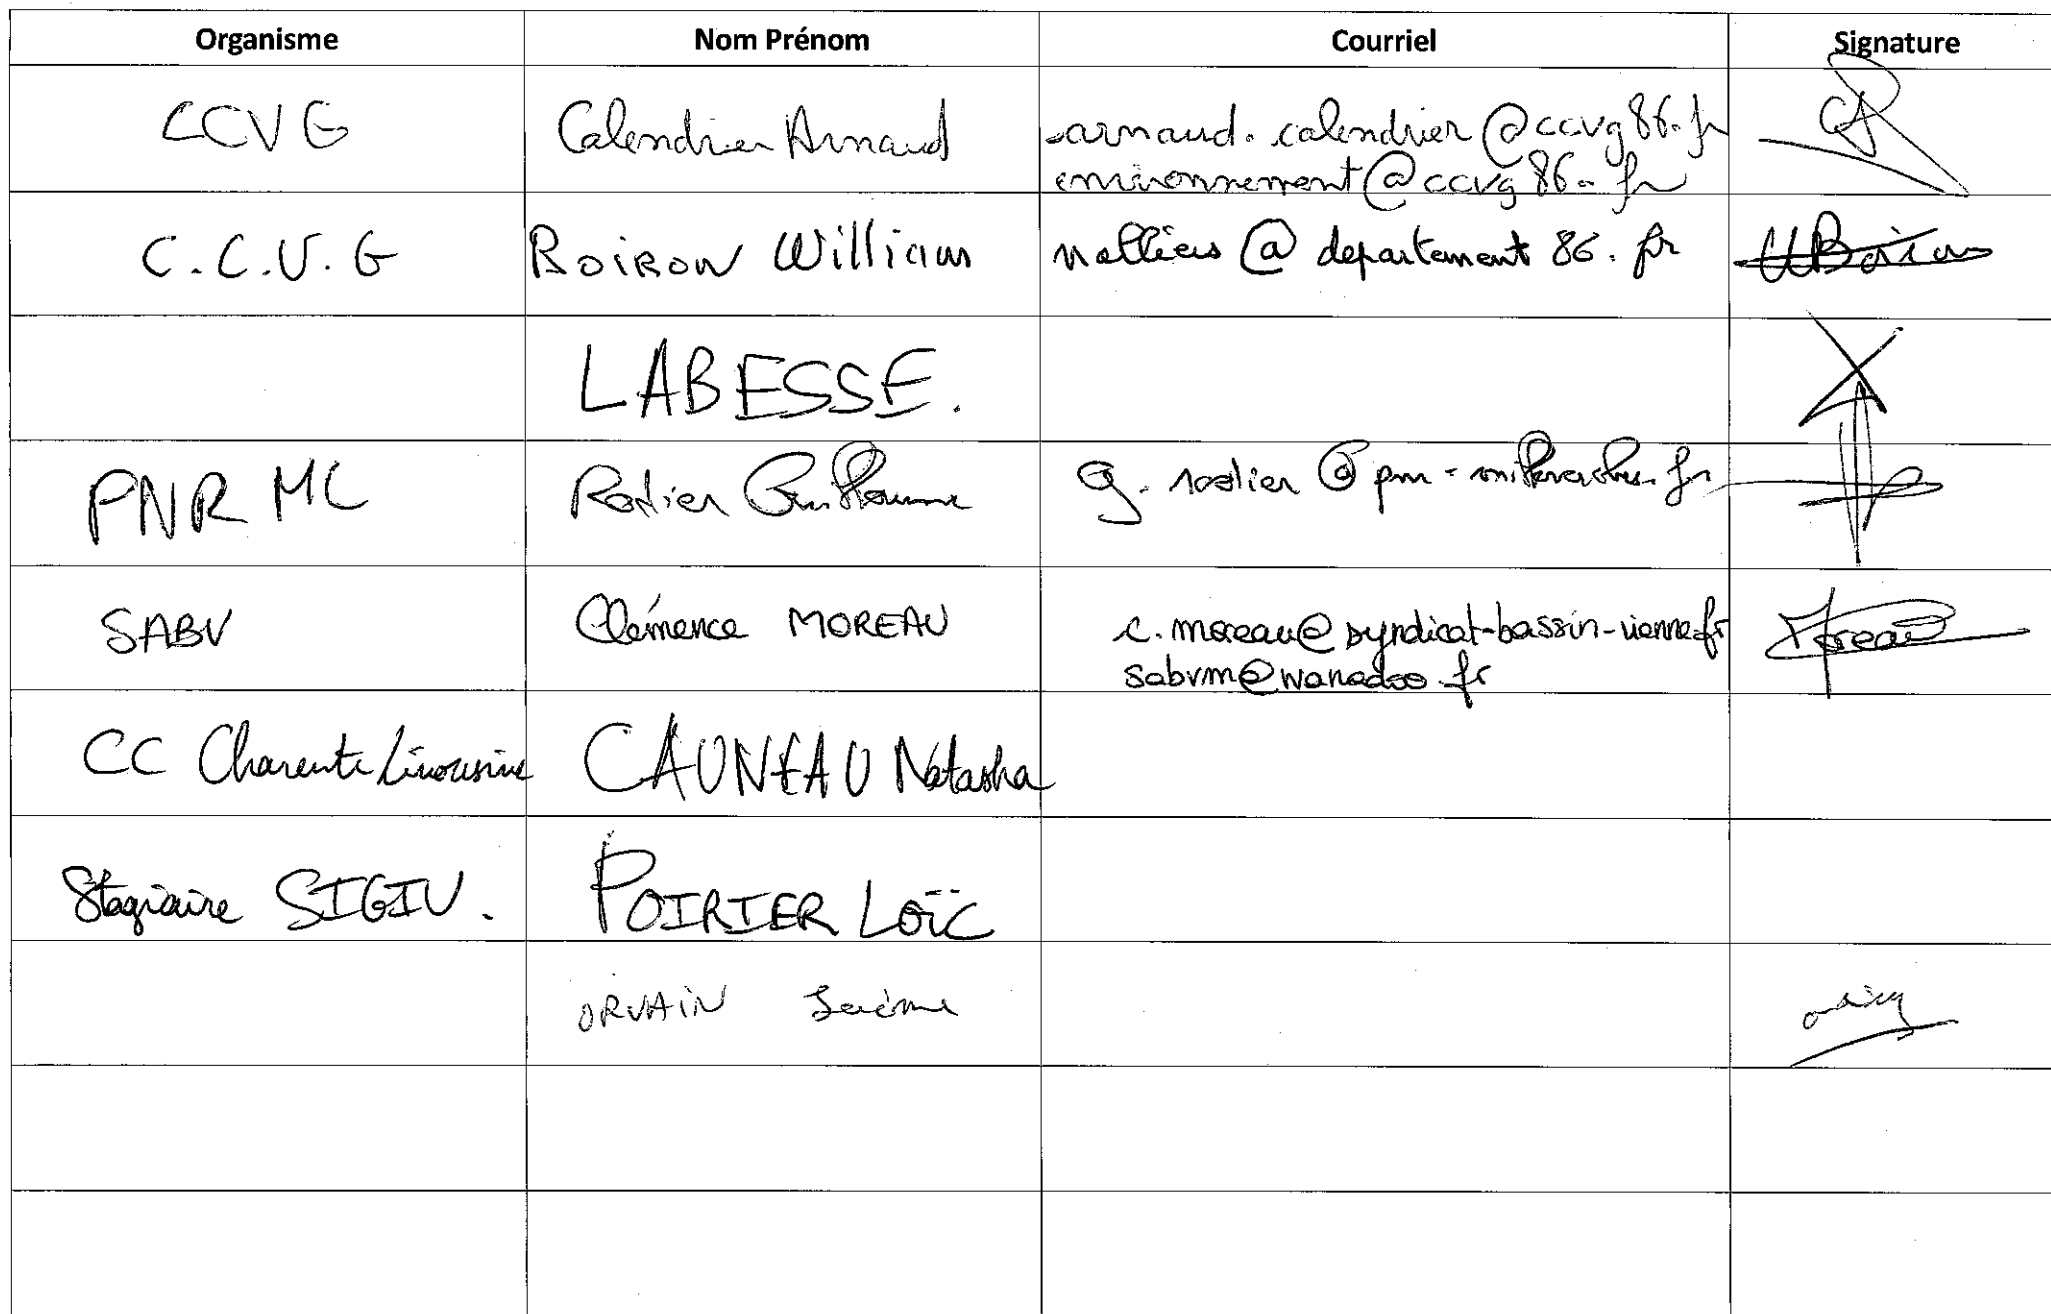 Organisme Nom Prénom Courriel Signature
CCVG Calendrier Arnaud arnaud.calendrier@ccvg86.fr
environnement@ccvg86.fr
C.C.V.G Boiron William nalliers@departement86.fr
LABESSE.
PNR MC Rodier Guillaume g.rodier@pnr-millevaches.fr
SABV Clémence MOREAU c.moreau@syndicat-bassin-vienne.fr Moreau
sabvm@wanadoo.fr
CC Charente Limousine CAUNEAU Natasha
Stagiaire SIGIV. POIRIER Loïc
ORVAIN Jérôme